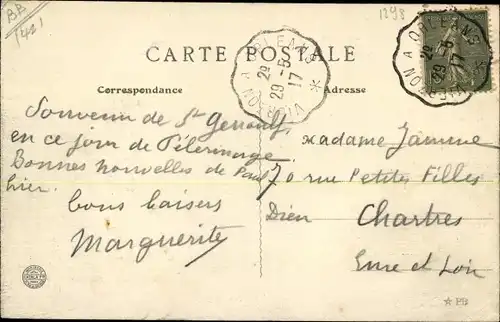 BB
1421
1298
CARTE POSTALE
Correspondance
Adresse
ORLEANS A VIERZON
2º
29-5
17
ORLEANS A VIERZON
2º
29-5
17
Souvenir de St Genouf
en ce jour de Pélerinage
Bonnes nouvelles de Paul
hier.
bons baisers
Marguerite
Madame Jamine
70 rue Petites Filles
Dieu
Chartres
Eure et Loir
PB